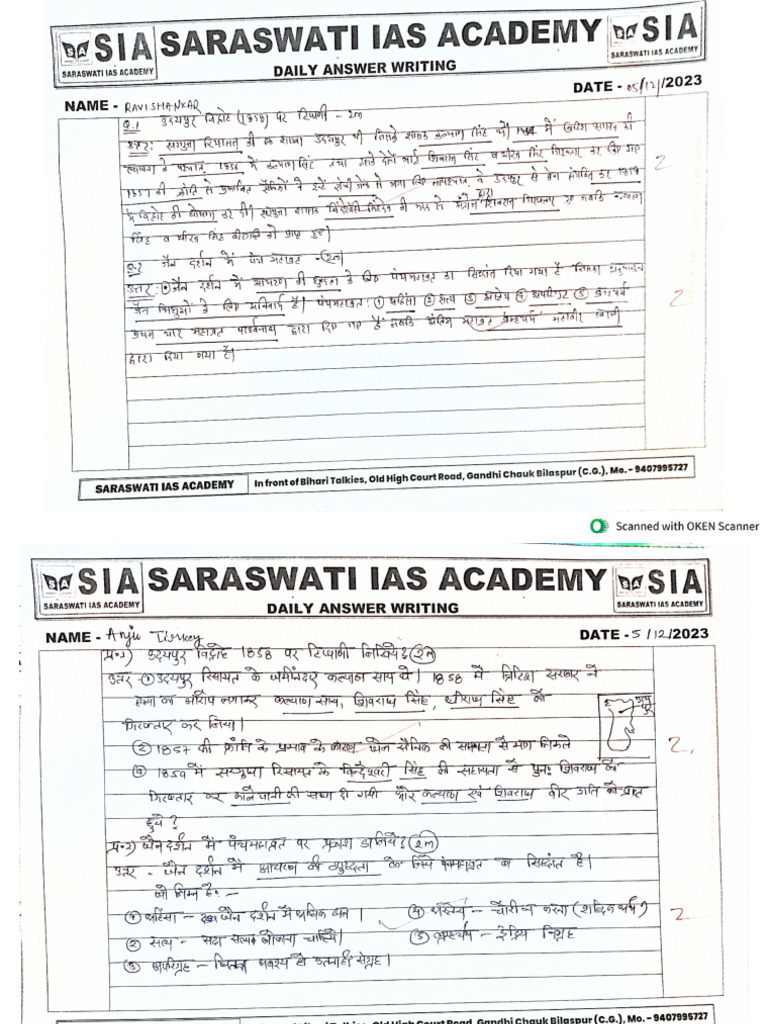 SIA SARASWATI IAS ACADEMY SIA
SARASWATI IAS ACADEMY DAILY ANSWER WRITING SARASWATI IAS ACADEMY
NAME - RAVISHANKAR DATE - 05/12/2023
Q.1 उदयपुर विद्रोह (1858) पर टिप्पणी - 2m
उत्तर: सरगुजा रियासत की एक शाखा उदयपुर थी जिसके शासक कल्याण सिंह थे। में ब्रिटिश शासन की
के पश्चात 1856 में कल्याण सिंह तथा उनके दोनों भाई शिवराज सिंह व धीरज सिंह गिरफ्तार कर लिए गए
1857 की क्रांति से प्रभावित सैनिकों ने इन्हें रांची जेल से भगा लिए तत्पश्चात वे उदयपुर से सेना संगठित कर 1859
में विद्रोह की घोषणा कर दी। सरगुजा शासक की मदद से द्वारा शिवराज गिरफ्तार हुए जबकि कल्याण
सिंह व धीरज सिंह वीरगति को प्राप्त हुए।
Q.2 जैन दर्शन में पंच महाव्रत - (2m)
उत्तर: जैन दर्शन में आचरण की शुद्धता के लिए पंचमहाव्रत का सिद्धांत दिया गया है जिसका अनुपालन
जैन भिक्षुओं के लिए अनिवार्य है। पंचमहाव्रत: ① अहिंसा ② सत्य ③ अस्तेय ④ अपरिग्रह ⑤ ब्रम्हचर्य
प्रथम चार महाव्रत पार्श्वनाथ द्वारा दिए गए हैं जबकि अंतिम महाव्रत ब्रम्हचर्य महावीर स्वामी
द्वारा दिया गया है।
2
2
SARASWATI IAS ACADEMY In front of Bihari Talkies, Old High Court Road, Gandhi Chauk Bilaspur (C.G.), Mo. - 9407995727
Scanned with OKEN Scanner
SIA SARASWATI IAS ACADEMY SIA
SARASWATI IAS ACADEMY DAILY ANSWER WRITING SARASWATI IAS ACADEMY
NAME - Anju Tirkey DATE - 5/12/2023
प्र०1) उदयपुर विद्रोह 1858 पर टिप्पणी लिखिये? (2m)
उत्तर - ① उदयपुर रियासत के जमींदार कल्याण साय थे। 1858 में ब्रिटिश सरकार ने
हत्या का आरोप लगाकर कल्याण साय, शिवराज सिंह, धीराज सिंह को
गिरफ्तार कर लिया।
② 1857 की क्रांति के प्रभाव के कारण जेल सैनिक की सहायता से भाग निकले
③ 1859 में सरगुजा रियासत के बिन्देश्वरी सिंह की सहायता से पुनः शिवराज को
गिरफ्तार कर कालेपानी की सजा दी गयी और कल्याण एवं शिवराज वीर गति को प्राप्त
हुये?
प्र०2) जैन दर्शन में पंचमहाव्रत पर प्रकाश डालिये? (2m)
उत्तर - जैन दर्शन में आचरण की शुद्धता के लिये पंचमहाव्रत का सिद्धांत है।
जो निम्न है: -
① अहिंसा - जैन दर्शन में अधिक बल। ④ अस्तेय - चोरी न करना (शाब्दिक अर्थ)
② सत्य - सदा सत्य बोलना चाहिये। ⑤ ब्रम्हचर्य - इंद्रिय निग्रह
③ अपरिग्रह - जितना आवश्य हो उतना ही संग्रह।
2
2
Road, Gandhi Chauk Bilaspur (C.G.), Mo. - 9407995727